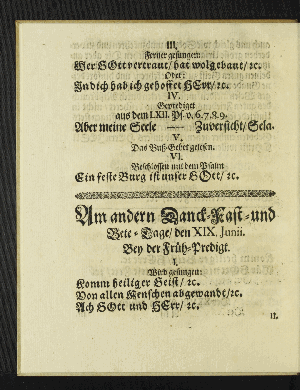 III.
Ferner gesungen:
Wer GOtt vertraut/ hat wolgebaut/ ꝛc.
Oder:
In dich hab ich gehoffet HErr/ ꝛc.
IV.
Geprediget
aus dem LXII. Ps. v. 6. 7. 8. 9.
Aber meine Seele — Zuversicht/ Sela.
V.
Das Buß-Gebet gelesen.
VI.
Beschlossen mit dem Psalm
Ein feste Burg ist unser GOtt/ ꝛc.
Am andern Danck-Fast- und
Bete-Tage/ den XIX. Junii.
Bey der Früh-Predigt.
I.
Wird gesungen:
Komm heiliger Geist/ ꝛc.
Von allen Menschen abgewandt/ ꝛc.
Ach GOtt und HErr/ ꝛc.
II.